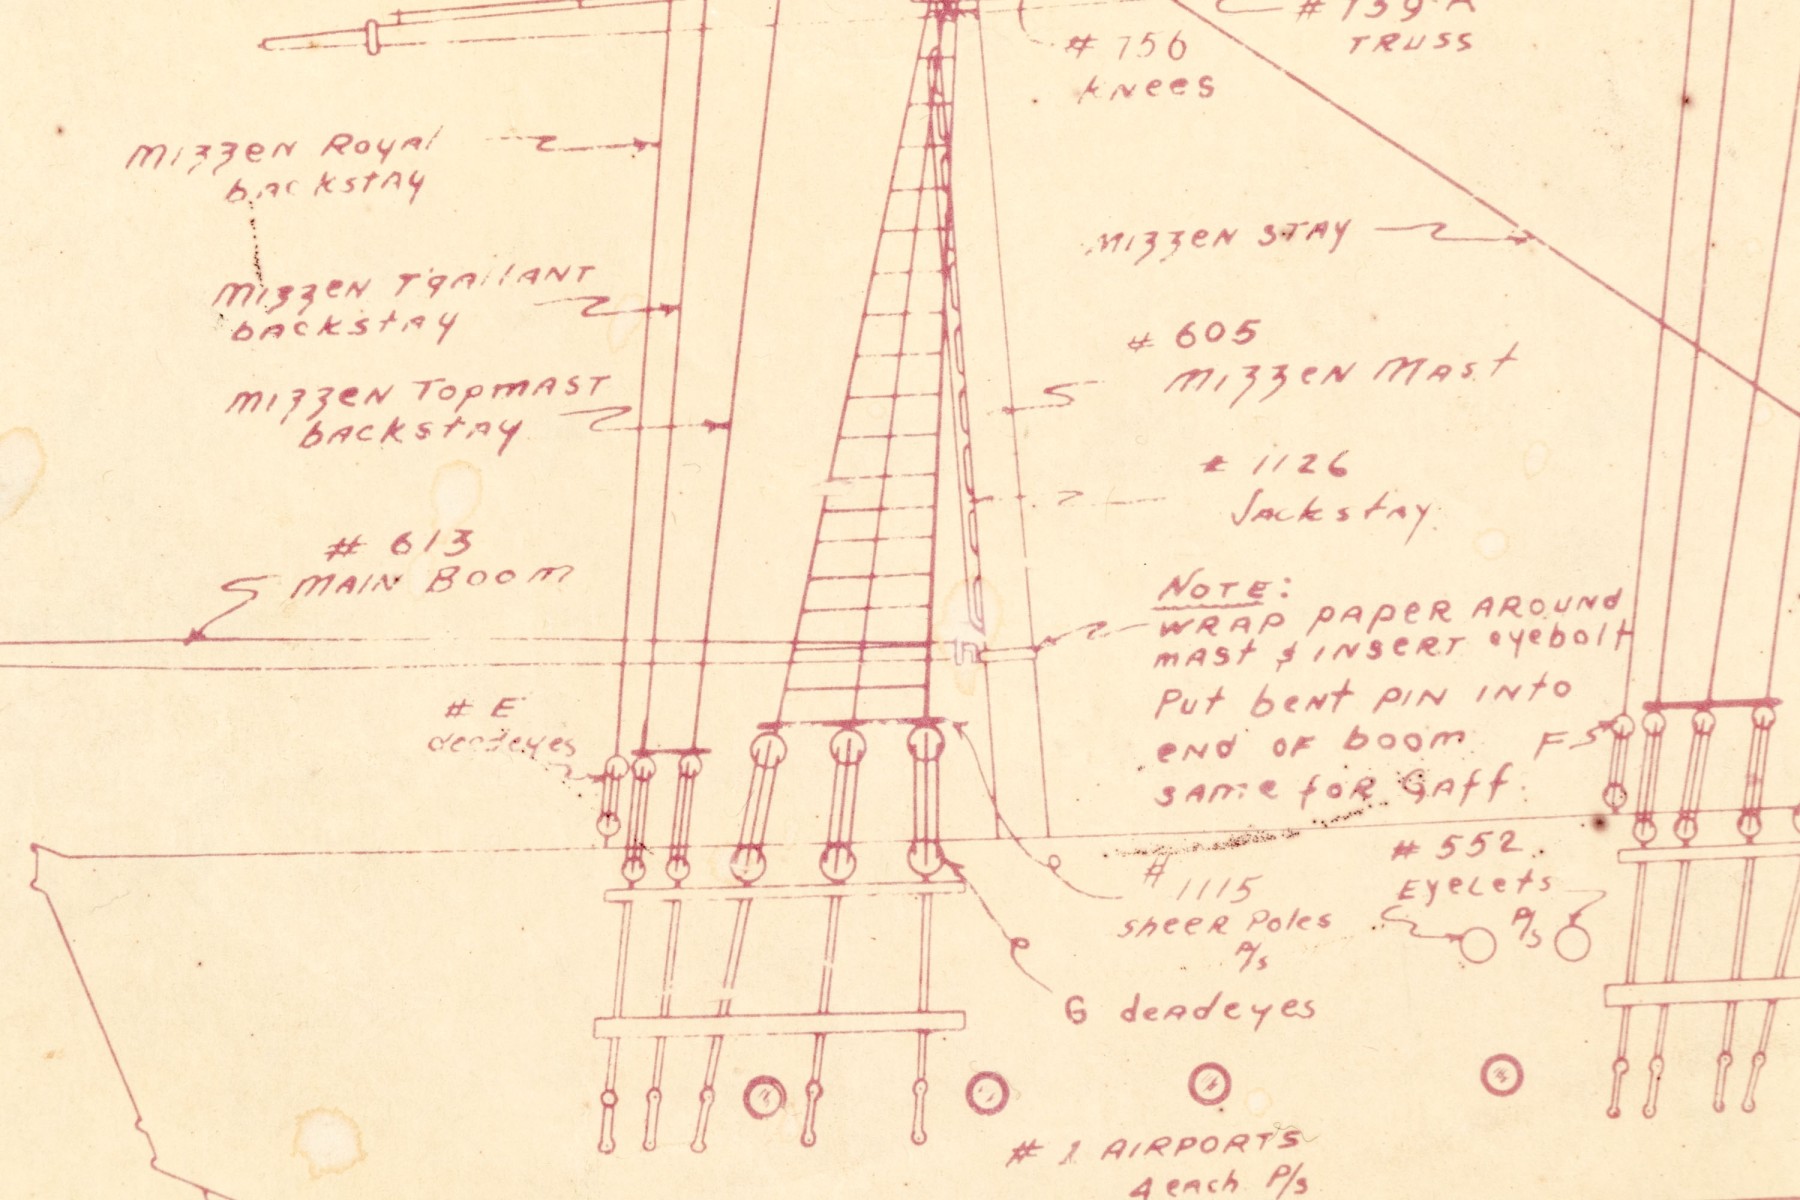 # 739-A
TRUSS
# 756
Knees
Mizzen Royal
backstay
Mizzen T'gallant
backstay
Mizzen Topmast
backstay
Mizzen Stay
# 605
Mizzen Mast
# 1126
Jackstay
# 613
MAIN BOOM
NOTE:
WRAP PAPER AROUND
MAST & INSERT eyebolt
Put bent PIN INTO
end OF boom
same FOR Gaff.
# E
deadeyes
F
# 1115
Sheer Poles
P/s
# 552
Eyelets
P/s
G deadeyes
# 1 AIRPORTS
4 each P/s